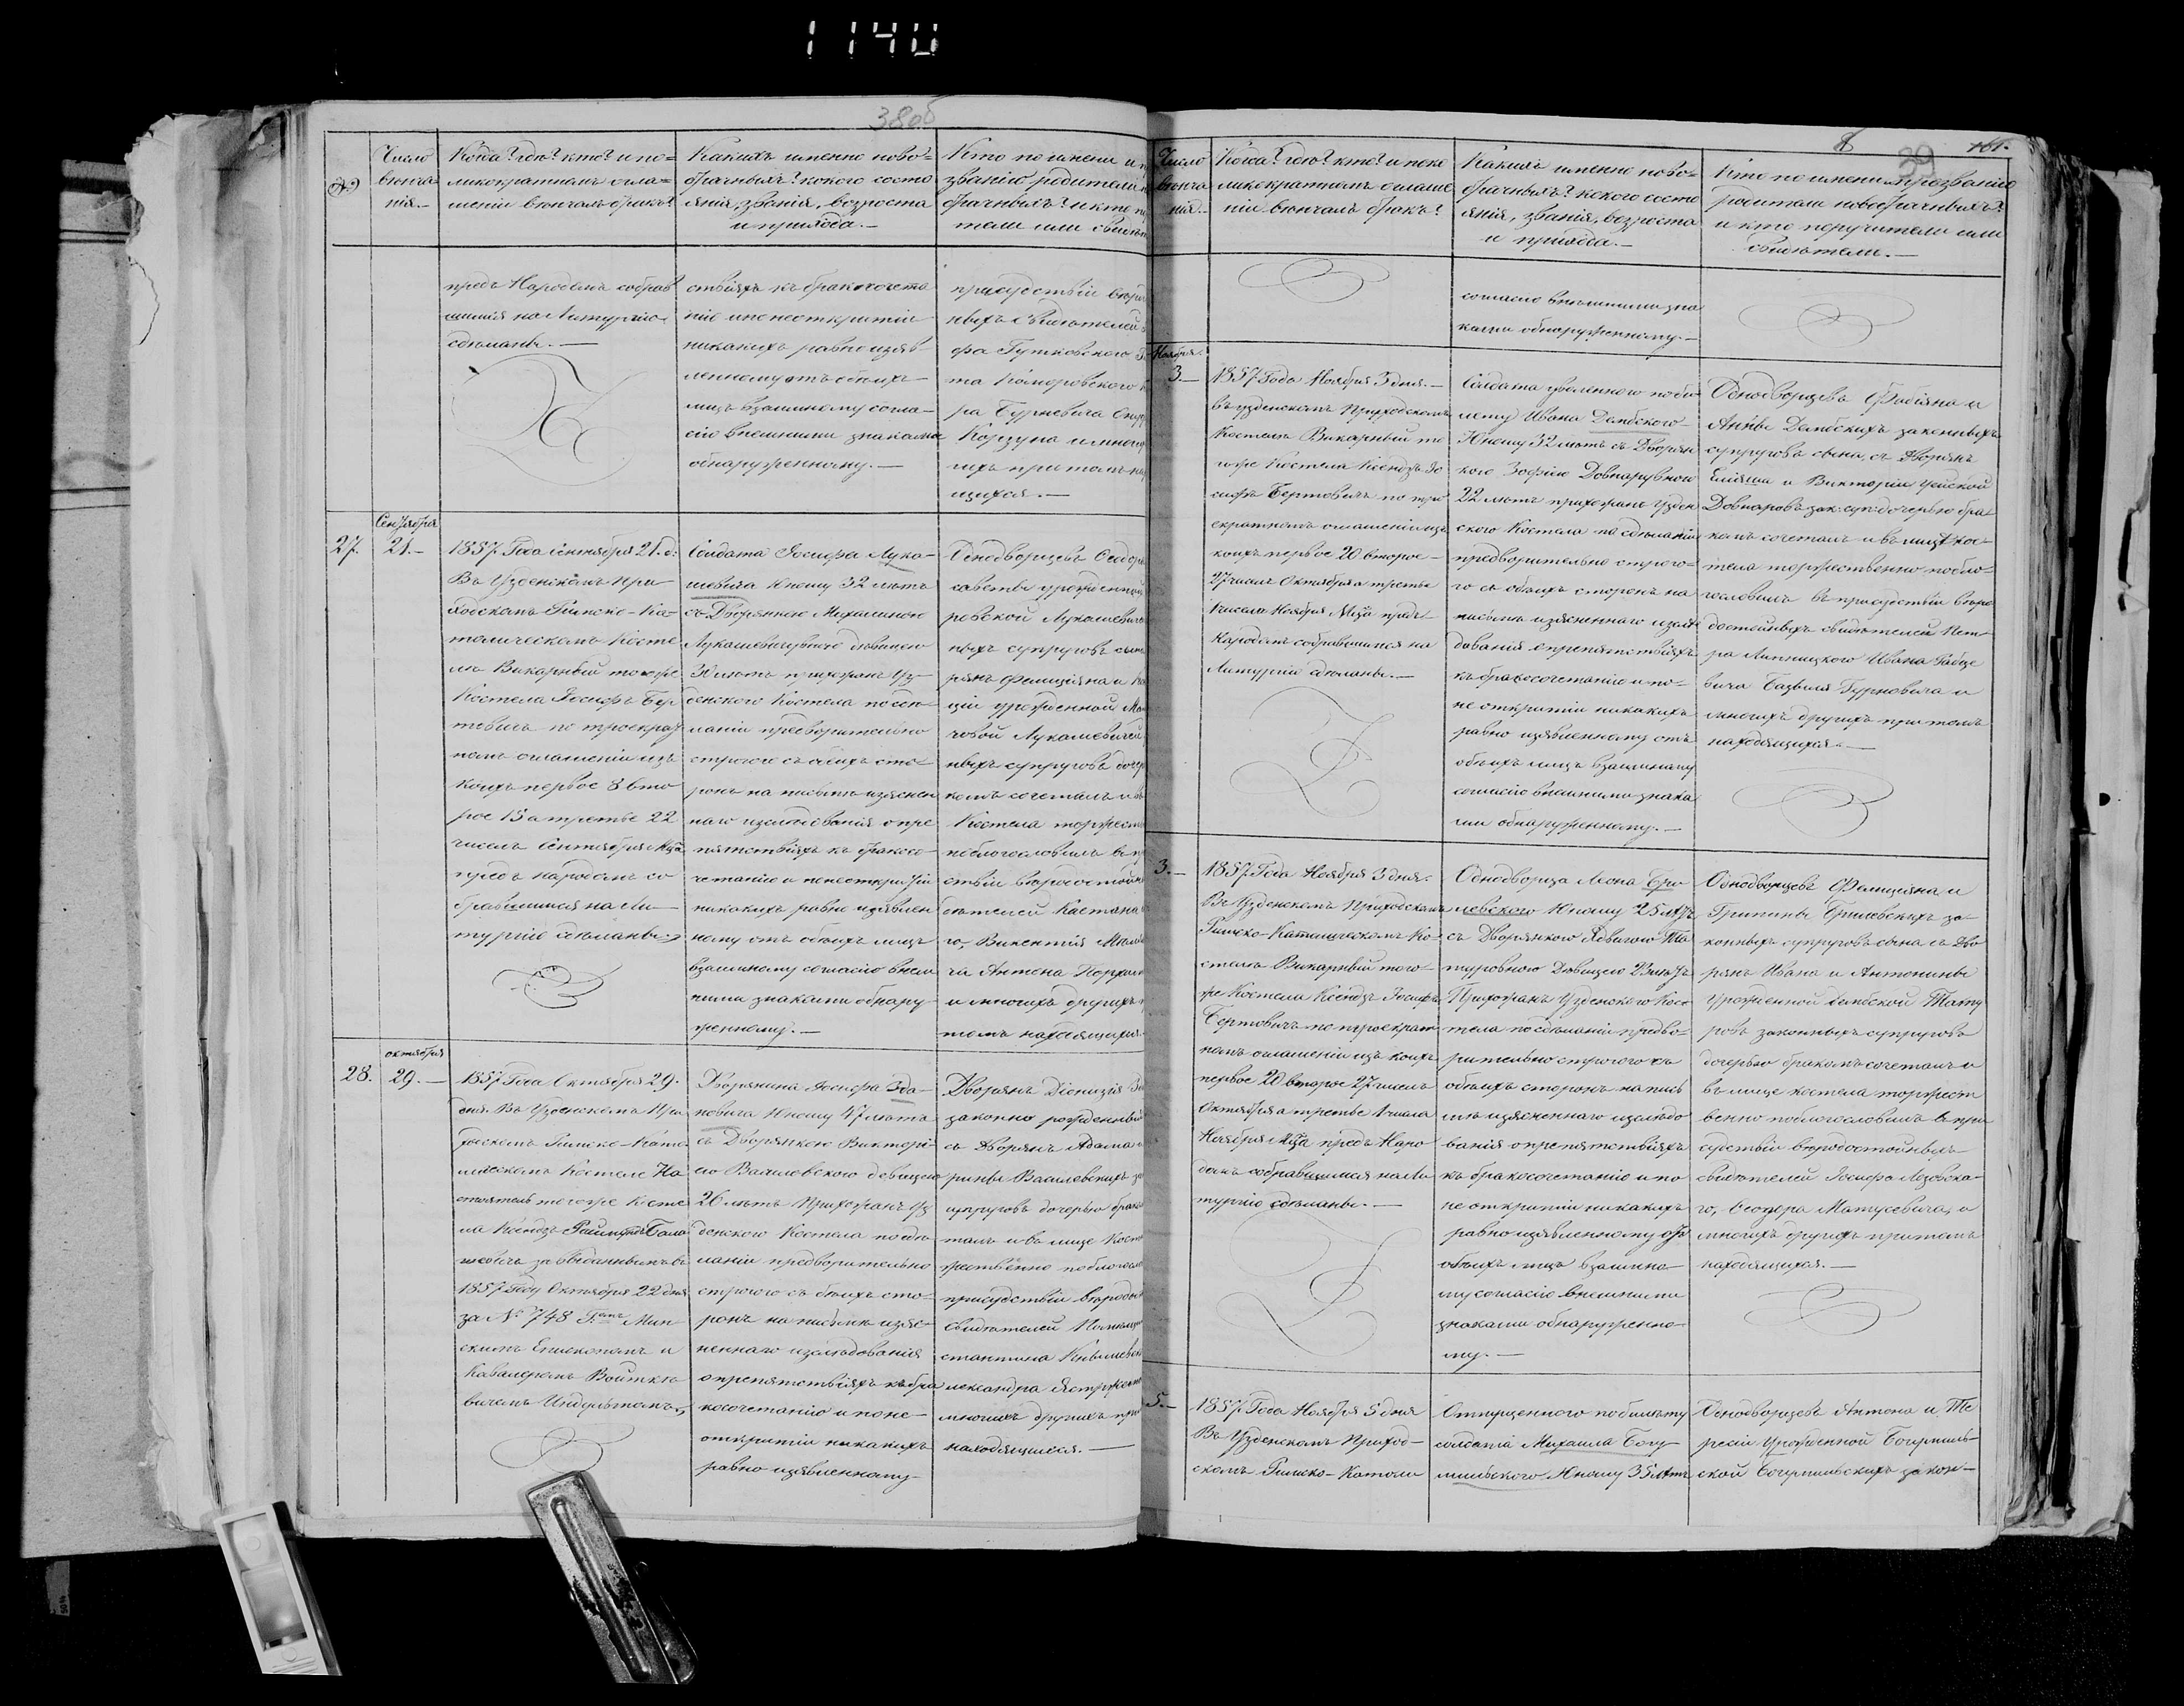 1140
38об
№
Число
вѣнча
нія.—
Когда? гдѣ? кто? и по=
ликократномъ огла=
шеніи вѣнчалъ бракъ?
Какихъ именно ново=
брачныхъ? какого состо
янія, званія, возроста
и прихода.—
Кто по имени и
званію родители
брачныхъ? и кто
тели или свидѣт
предъ Народомъ собрав
шимся на Литургію
сдѣланы.—
ствіяхъ къ бракосочета
нію и по неоткрытіи
никакихъ равно изъяв
ленному отъ обоихъ
лицъ взаимному согла-
сію внешними знаками
обнаруженному.—
присудствіи вѣро
ныхъ свидѣтелей
фа Гутковского
та Коморовского
ра Бурневича
Корзуна и многи
гихъ при томъ на
щихся.—
27.
Сентября
21.—
1857 Года Сентября 21. д:
Въ Узденскомъ При
ходскомъ Римско-Ка-
толическомъ Косте
лѣ Викарный того же
Костела Іосифъ Бер
товичъ по троекрат
номъ оглашеніи изъ
коихъ первое 8 вто
рое 15 а третье 22
чиселъ Сентября Мца
предъ народомъ со
бравшимся на Ли-
тургію сдѣланы.
Солдата Іосифа Лука-
шевича Юношу 32 лѣтъ
съ Дворянкою Михалиною
Лукашевичувною дѣвицею
30 лѣтъ прихожанъ Уз-
денского Костела по сдѣ-
ланіи предворительно
строгого съ обѣихъ сто-
ронъ на письмѣ изъяснен
наго изслѣдованія о пре
пятствіяхъ къ бракосо-
четанію и по неоткрытіи
никакихъ равно изъявлен
ному отъ обѣихъ лицъ
взаимному согласію внеш
ними знаками обнару-
женному.—
Однодворцевъ Феодора
саветы урожденной
ровской Лукашевич
ныхъ супруговъ сына
рянъ Фелиціяна и
ціи урожденной
човой Лукашевичей
ныхъ супруговъ доче
комъ сочеталъ и въ
Костела торжест
поблогословилъ въ пр
ствіи вѣродостойн
дѣтелей Каетана
го, Викентія
ча Антона
и многихъ другихъ
томъ находящихся.
28.
октября
29.—
1857 Года Октября 29.
дня. Въ Узденскомъ При
ходскомъ Римско-Като
лическомъ Костелѣ На
стоятель того же Косте
ла Ксендзъ
за выданнымъ въ
1857 Году Октября 22 дня
за № 748 Мин-
скимъ Епископомъ и
Кавалеромъ Войткѣ
вичемъ Индультомъ,
Дворянина Іосифа Зда-
новича Юношу 47 лѣтъ
съ Дворянкою Викторі-
ею Василевского девицею
26 лѣтъ Прихожанъ Уз
денского Костела по сдѣ
ланіи предворительно
строгого съ обѣихъ сто-
ронъ на письмѣ изъяс-
неннаго изслѣдованія
о препятствіяхъ къ бра
косочетанію и по не-
открытіи никакихъ
равно изъявленному
Дворянъ Діонизія
законно рожденный
съ Дворянъ Адама
рины Василевскихъ
супруговъ дочерью брак
талъ и въ лице Кост
жественно поблогосл
присудствіи вѣродос
свидѣтелей Помѣщи
стантина
лександра
многихъ другихъ при
находящихся.—
8
39
161.
Число
вѣнча
нія.—
Когда? гдѣ? кто? и поко
ликократномъ оглаше
ніи вѣнчалъ бракъ?
Какихъ именно ново-
брачныхъ? какого состо
янія, званія, возроста
и прихода.—
Кто по имени и прозванію
родители новобрачныхъ?
и кто поручители или
свидѣтели.—
согласію внѣшними зна
ками обнаруженному.—
Ноября
3.—
1857 Года Ноября 3 дня.—
въ узденскомъ Приходскомъ
Костелѣ Викарный то
го же Костела Ксендзъ Іо
сифъ Бертовичъ по трое
екратномъ оглашеніи изъ
коихъ первое 20 второе
27 чиселъ Октября а третье
1 числа Ноября Мца предъ
Народомъ собравшимся на
Литургіи сдѣланы.—
Солдата уволенного по би
лету Ивана Дембского
Юношу 32 лѣтъ съ Дворян
кою Зофіею Довнарувного
22 лѣтъ прихожанъ Узден
ского Костела по сдѣланіи
предворительно строго-
го съ обѣихъ сторонъ на
письмѣ изъясненнаго изслѣ
дованія о препятствіяхъ
къ бракосочетанію и по-
не открытіи никакихъ
равно изъявленному отъ
обѣихъ лицъ взаимному
согласію внешними знака
ми обнаруженному.—
Однодворцевъ Фабіяна и
Анны Дембскихъ законныхъ
супруговъ сына, съ Дворянъ
Еліяша и Викторіи
Довнаровъ зак: суп: дочерью бра
комъ сочеталъ и въ лицѣ кос-
тела торжественно побло-
гословилъ въ присудствіи вѣро
достойныхъ свидѣтелей Пет-
ра Липницкого Ивана Рабце
вича Базыля Гурновича и
многихъ другихъ при томъ
находящихся.—
3.—
1857 Года Ноября 3 дня.
Въ Узденскомъ Приходскомъ
Римско-Католическомъ Ко-
стелѣ Викарный того-
же Костела Ксендзъ Іосифъ
Бертовичъ по троекрат
номъ оглашеніи изъ коихъ
первое 20 второе 27 чиселъ
Октября а третье 1 числа
Ноября Мца предъ Наро
домъ собравшимся на Ли
тургію сдѣланы.—
Однодворца Леона Бри
левского Юношу 25 лѣтъ
съ Дворянкого Ядвигого Та
туровного Дѣвицею 23 лѣтъ
Прихожанъ Узденского Кос
тела по сдѣланіи предво-
рительно строгого съ
обѣихъ сторонъ на пись
мѣ изъясненнаго изслѣдо
ванія о препятствіяхъ
къ бракосочетанію и по
не открытіи никакихъ
равно изъявленному отъ
обѣихъ лицъ взаимно-
му согласію внешними
знаками обнаруженно-
му.—
Однодворцевъ Фелиціяна и
Грипины Брилевскихъ за-
конныхъ супруговъ сына съ Дво
рянъ Ивана и Антонины
Урожденной Дембской Тату
ровъ законныхъ супруговъ
дочерью бракомъ сочеталъ и
въ лице костела торжест
венно поблогословилъ въ при
судствіи вѣродостойныхъ
свидѣтелей Іосифа Лозовска-
го, Феодора Матусевича, и
многихъ другихъ притомъ
находящихся.—
5.—
1857 Года Ноября 5 дня
Въ Узденскомъ Приход-
скомъ Римско-Католи
Отпущенного по билѣту
солдата Михаила Богу
Юношу 35 лѣтъ
Однодворцевъ Антона и Те
ресіи Урожденной
ской закон-